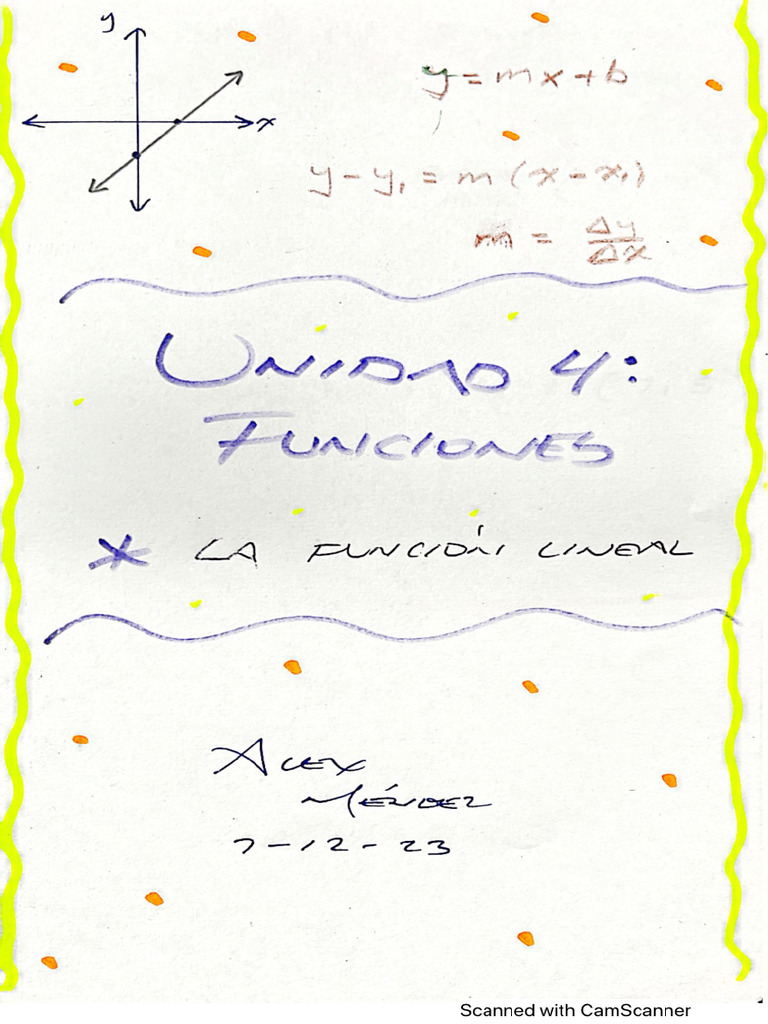 y
x
y = mx + b
y - y₁ = m (x - x₁)
m = Δy/Δx
UNIDAD 4:
FUNCIONES
* LA FUNCIÓN LINEAL
ALEX
MÉNDEZ
7-12-23
Scanned with CamScanner